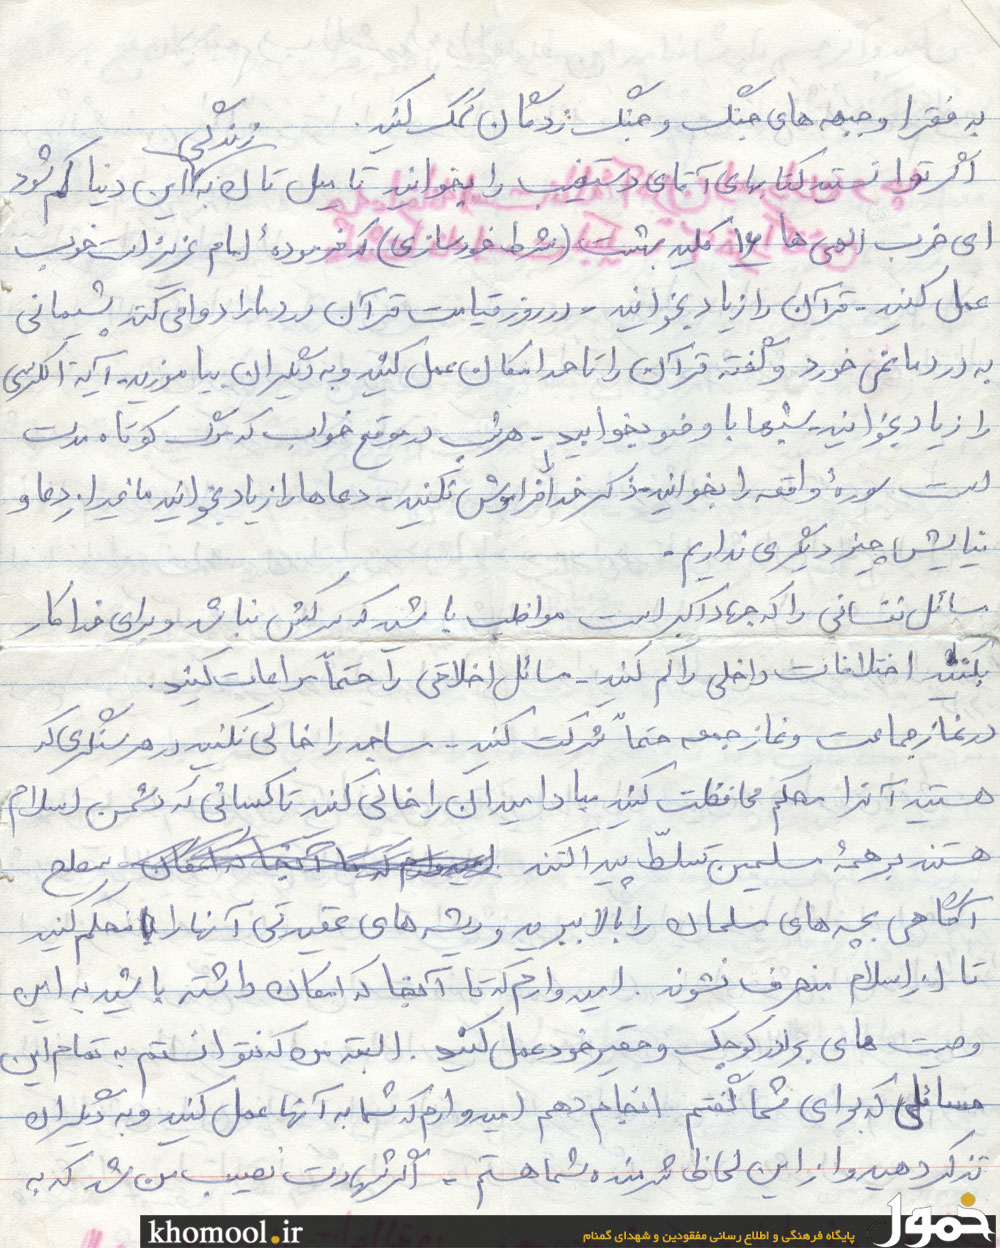 به فقرا و جبهه های جنگ و جنگ زدگان کمک کنید.
زندگی
اگر توانستید کتابهای آقای دستغیب را بخوانید تا میل تان به این دنیا کم شود
ای حزب الهی ها ۱۶ کلید بهشت (شرط خودسازی) که فرمودهٔ امام عزیز است خوب
عمل کنید - قرآن را زیاد بخوانید - در روز قیامت قرآن درد ما را دوا می کند پشیمانی
به درد ما نمی خورد و گفته قرآن را تا حد امکان عمل کنید و به دیگران بیاموزید - آیة الکرسی
را زیاد بخوانید - شبها با وضو بخوابید - هر شب در موقع خواب که مرگ کوتاه مدت
است سورهٔ واقعه را بخوانید - ذکر خدا را فراموش نکنید - دعاها را زیاد بخوانید ما غیر از دعا و
نیایش چیز دیگری نداریم -
مسائل نفسانی را که جهاد اکبر است مواظب باشید که سرکش نباشد و برای خدا کار
بکنید اختلافات داخلی را کم کنید - مسائل اخلاقی را حتماً مراعات کنید.
در نماز جماعت و نماز جمعه حتماً شرکت کنید - مساجد را خالی نکنید در هر سنگری که
هستید آنرا محکم محافظت کنید مبادا میدان را خالی کنید تا کسانی که دشمن اسلام
هستند بر همهٔ مسلمین تسلّط پیدا کنند سطح
آگاهی بچه های مسلمان را بالا ببرید و ریشه های عقیدتی آنها را محکم کنید
تا از اسلام منحرف نشوند. امیدوارم که تا آنجا که امکان داشته باشید به این
وصیت های برادر کوچک و حقیر خود عمل کنید. البته من که نتوانستم به تمام این
مسائلی که برای شما گفتم انجام دهم امیدوارم که شما به آنها عمل کنید و به دیگران
تذکر دهید و از این لحاظ شرمنده شما هستم - اگر شهادت نصیب من شد که به
khomool.ir
پایگاه فرهنگی و اطلاع رسانی مفقودین و شهدای گمنام
خمول